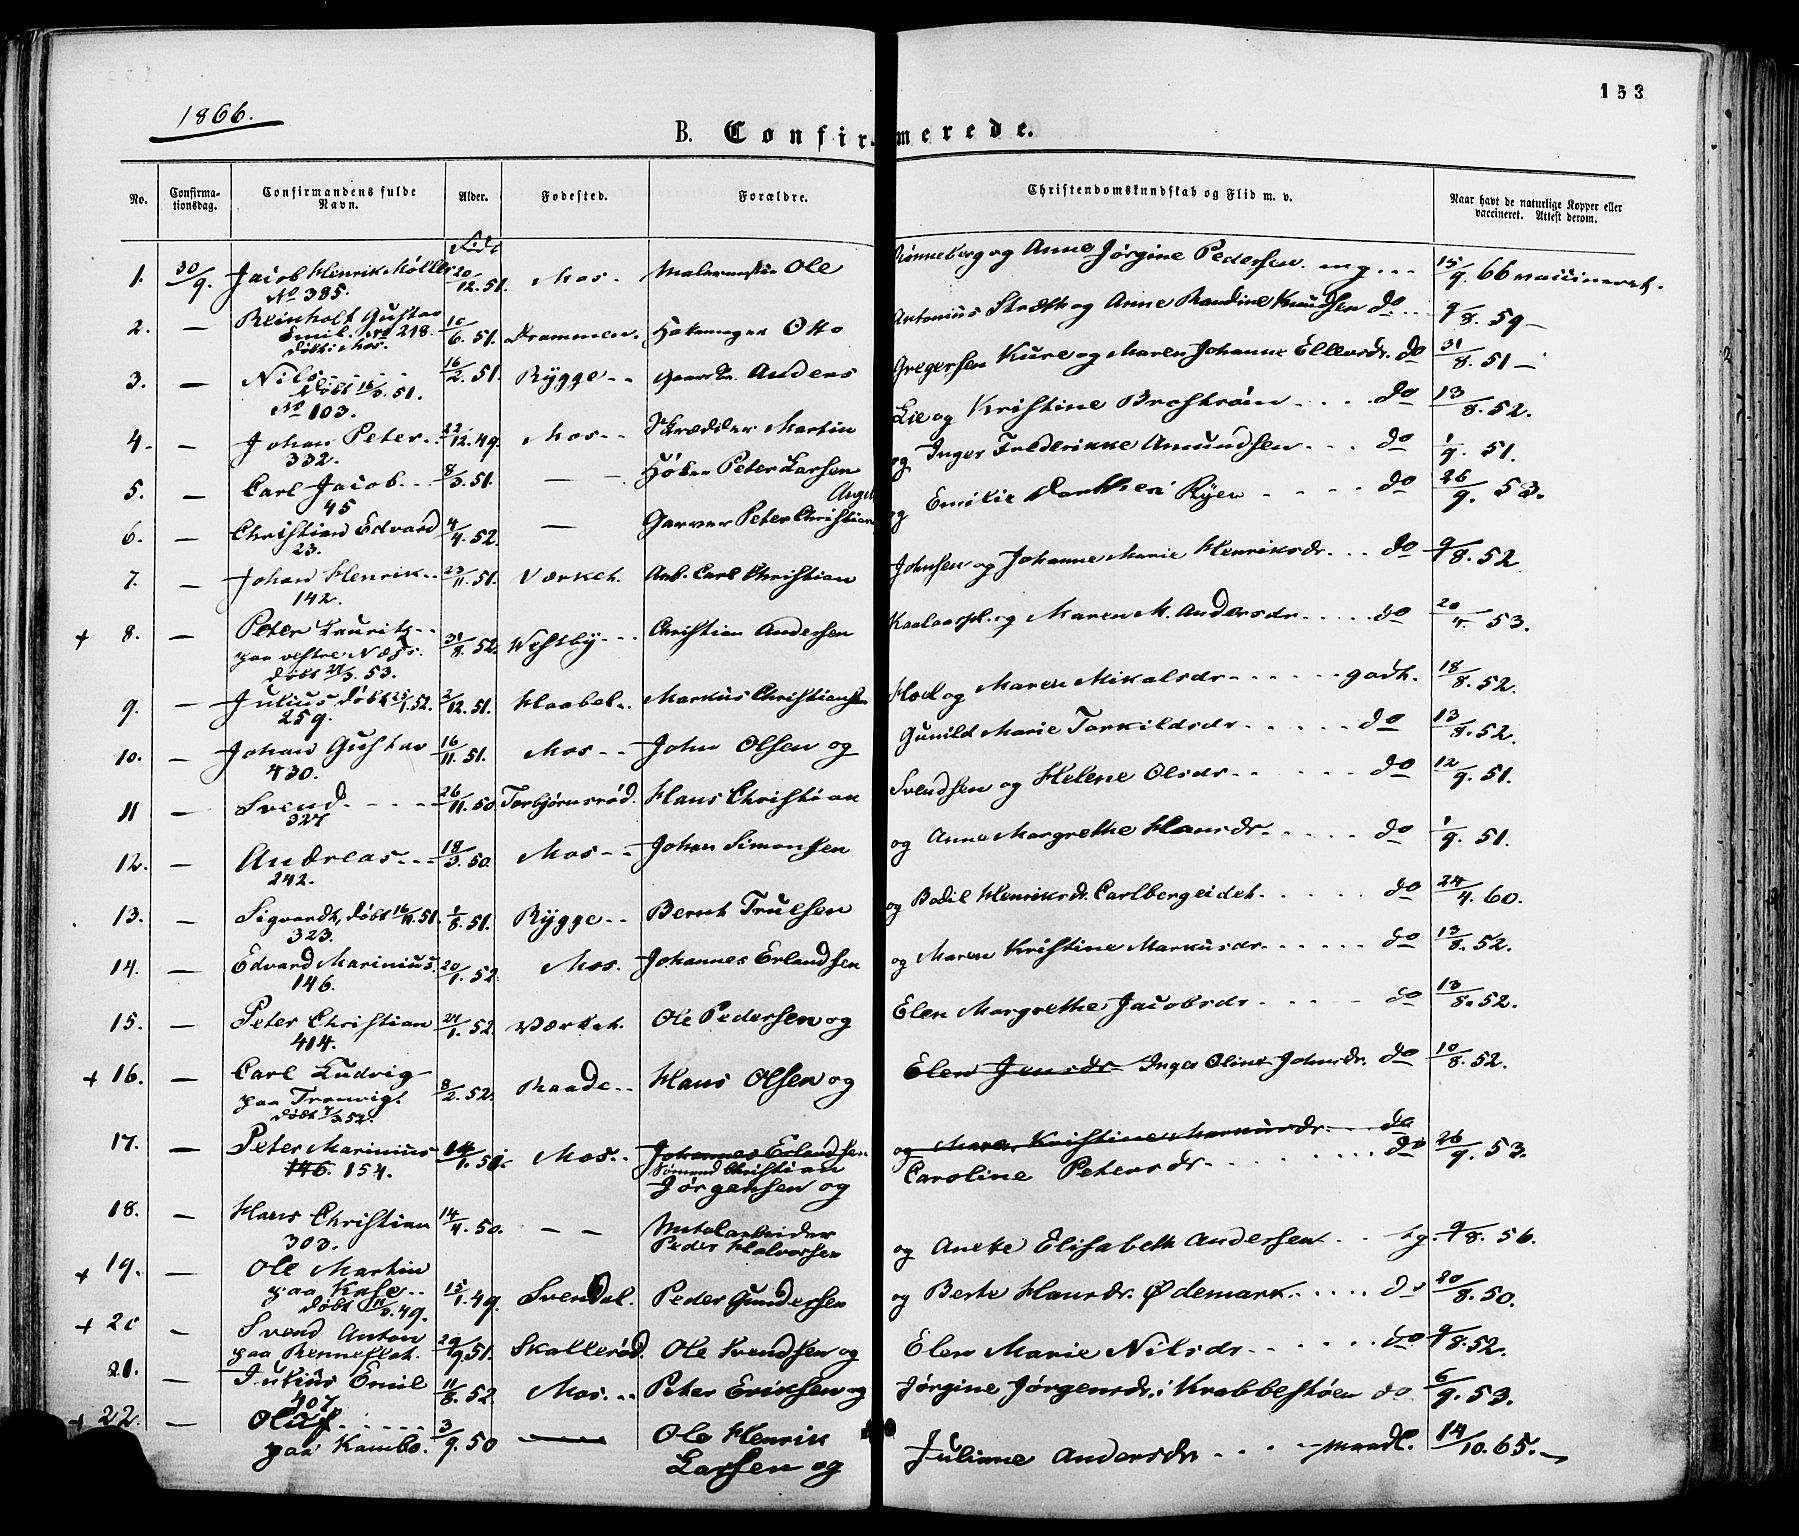 153
1866.
B. Confirmerede.
No. Confirmationsdag. Confirmandens fulde Navn. Alder. Fødested. Forældre. Christendomskundskab og Flid m. v. Naar havt de naturlige Kopper eller vaccineret. Attest derom.
Født
1. 30/9. Jacob Henrik Møller 20/12. 51. Mos. Ole Rønneberg og Anne Jørgine Pedersen. mg... 15/9. 66 vaccineret.
No 385.
2. — Reinholt Gustav 10/6. 51. Drammen. Otto Antonius og Anne Randine Knudsen do.. 9/8. 59 —
Emil. No 218.
Døbt i Mos.
3. — Nils 16/2. 51. Rygge -- Anders Gregersen Kure og Maren Johanne Ellevsdr. do 31/8. 51 —
Døbt 16/3. 51.
No 103.
4. — Johan Peter.. 22/12. 49. Mos -- Skrædder Martin Lie og Kristine Broström. . . . do 13/8. 52.
332.
5. — Carl Jacob. . . 8/3. 51. — Høker Peter Larsen og Inger Frederikke Amundsen. . . do 1/9. 51.
45
6. — Christian Edvard 4/4. 52. — Garver Peter Christian og Emilie Ryen - - - - do 26/9. 53.
23.
7. — Johan Henrik.. 23/11. 51. Værket. Arb. Carl Christian Johnsen og Johanne Marie Henriksdr. . . do 9/8. 52.
142.
+ 8. — Peter Lauritz. . 31/8. 52. Westby - - - Christian Andersen og Maren M. Andersdr . . . . . do 20/4. 53.
paa vestre Næss.
Døbt 27/3. 53.
9. — Julius døbt 25/1. 52. 2/12. 51. Haabøl.. Markus Christiansen Hoel og Maren Mikalsdr - - - - - - godt. 18/8. 52.
259.
10. — Johan Gustav 16/11. 51. Mos - - John Olsen og Gunild Marie Torkildsdr - - - - do 13/8. 52.
430.
11 — Svend. - - - - 26/11. 50. Torbjørnsrød. Hans Christian Svendsen og Helene Olsdr. . . . . . do 12/9. 51.
327
12. — Andreas. . . 18/3. 50. Mos - - Johan Simonsen og Anne Margrethe Hansdr. . . . . . do 1/9. 51.
242.
13. — Sigvardt, døbt 16/11. 51. 1/8. 51. Rygge - - Bernt Truelsen og Bodil Henriksdr. Carlbergeidet. . . . . . do 24/4. 60.
323.
14. — Edvard Marinius. 20/1. 52. Mos. Johannes Erlandsen og Maren Kristine Markusdr. . . . . . do 13/8. 52.
146.
15. — Peter Christian 21/1. 52. Værket. Ole Pedersen og Elen Margrethe Jacobsdr . . . . . do 13/8. 52.
414.
+ 16. — Carl Ludvig 8/2. 52. Raade. . Hans Olsen og Elen Jensdr. Inger Oline Johnsdr. do 10/8. 52.
paa Tronvig.
Døbt 7/3 52.
17. — Peter Marinius 14/1. 50. Mos. . Johannes Erlandsen og Maren Kristine Markusdr. . . . do
146. 154. Sømand Christian Jørgensen og Caroline Petersdr. . . . . . . . do 26/9. 53.
18. — Hans Christian 14/4. 50. — — Metalarbeider Peder Halvorsen og Anete Elisabeth Andersen . . tg. 9/8. 56.
303.
+ 19. — Ole Martin 15/1. 49. Svendal. Peder Gundersen og Berte Hansdr. Ødemark. . . . . do 20/8. 50.
paa Kase. .
Døbt 11/3. 49.
+ 20 — Svend Anton 29/9. 51. Skallerød. Ole Svendsen og Elen Marie Nilsdr. . . . . . do. 9/8. 52.
paa Renneflot.
21. — Julius Emil 11/8. 52. Mos. . . Peter Eriksen og Jørgine Jørgensdr. i Krabbestøen do 6/9. 53.
407
+ 22. — Oluf. . . . . . 3/9. 50 — Ole Henrik Larsen og Juliane Andersdr . . . . maadl. 14/10. 65. —
paa Kambo.